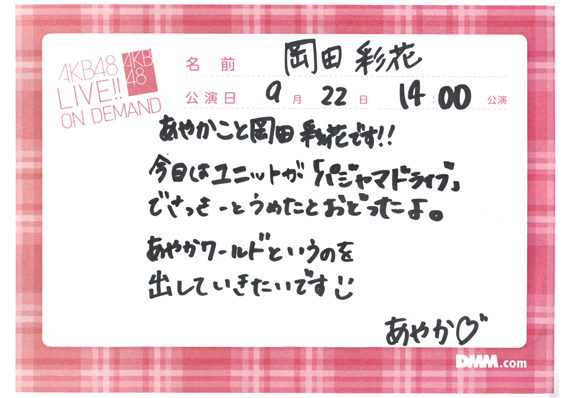 AKB48
LIVE!!
ON DEMAND
AKB
48
名前 岡田彩花
公演日 9月22日 14:00公演
あやかこと岡田彩花です!!
今日はユニットが「パジャマドライブ」
でさっきーとうめたとおどったよ。
あやかワールドというのを
出していきたいです
あやか♡
DMM.com